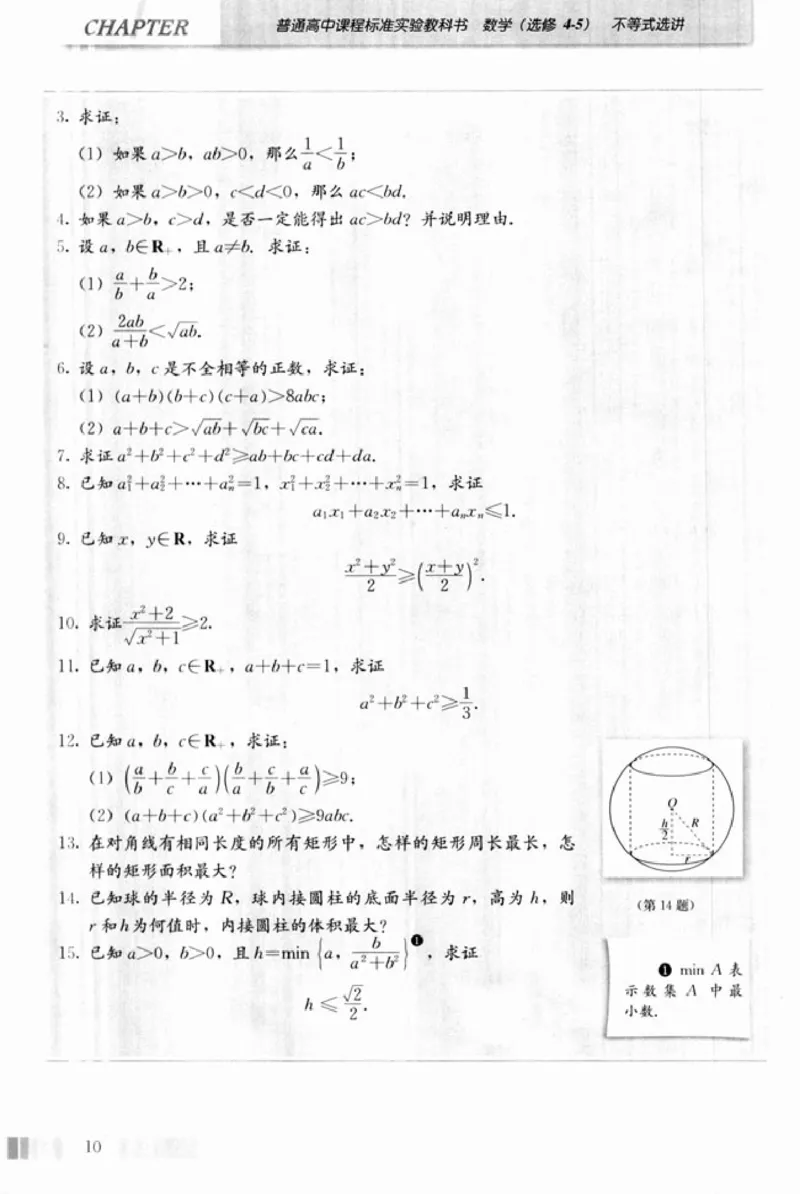 CHAPTER 普通高中课程标准实验教科书 数学（选修 4-5） 不等式选讲
3. 求证：
(1) 如果 a>b，ab>0，那么 1/a<1/b；
(2) 如果 a>b>0，c<d<0，那么 ac<bd.
4. 如果 a>b，c>d，是否一定能得出 ac>bd？并说明理由.
5. 设 a，b∈R₊，且 a≠b. 求证：
(1) a/b+b/a>2；
(2) 2ab/(a+b)<√ab.
6. 设 a，b，c 是不全相等的正数，求证：
(1) (a+b)(b+c)(c+a)>8abc；
(2) a+b+c>√ab+√bc+√ca.
7. 求证 a²+b²+c²+d²≥ab+bc+cd+da.
8. 已知 a₁²+a₂²+⋯+aₙ²=1，x₁²+x₂²+⋯+xₙ²=1，求证
a₁x₁+a₂x₂+⋯+aₙxₙ≤1.
9. 已知 x，y∈R，求证
(x²+y²)/2≥((x+y)/2)².
10. 求证 (x²+2)/√(x²+1)≥2.
11. 已知 a，b，c∈R₊，a+b+c=1，求证
a²+b²+c²≥1/3.
12. 已知 a，b，c∈R₊，求证：
(1) (a/b+b/c+c/a)(b/a+c/b+a/c)≥9；
(2) (a+b+c)(a²+b²+c²)≥9abc.
13. 在对角线有相同长度的所有矩形中，怎样的矩形周长最长，怎
样的矩形面积最大？
14. 已知球的半径为 R，球内接圆柱的底面半径为 r，高为 h，则
r 和 h 为何值时，内接圆柱的体积最大？
15. 已知 a>0，b>0，且 h=min{a，b/(a²+b²)}❶，求证
h≤√2/2.
O
h/2
R
r
（第 14 题）
❶ min A 表
示数集 A 中最
小数.
10